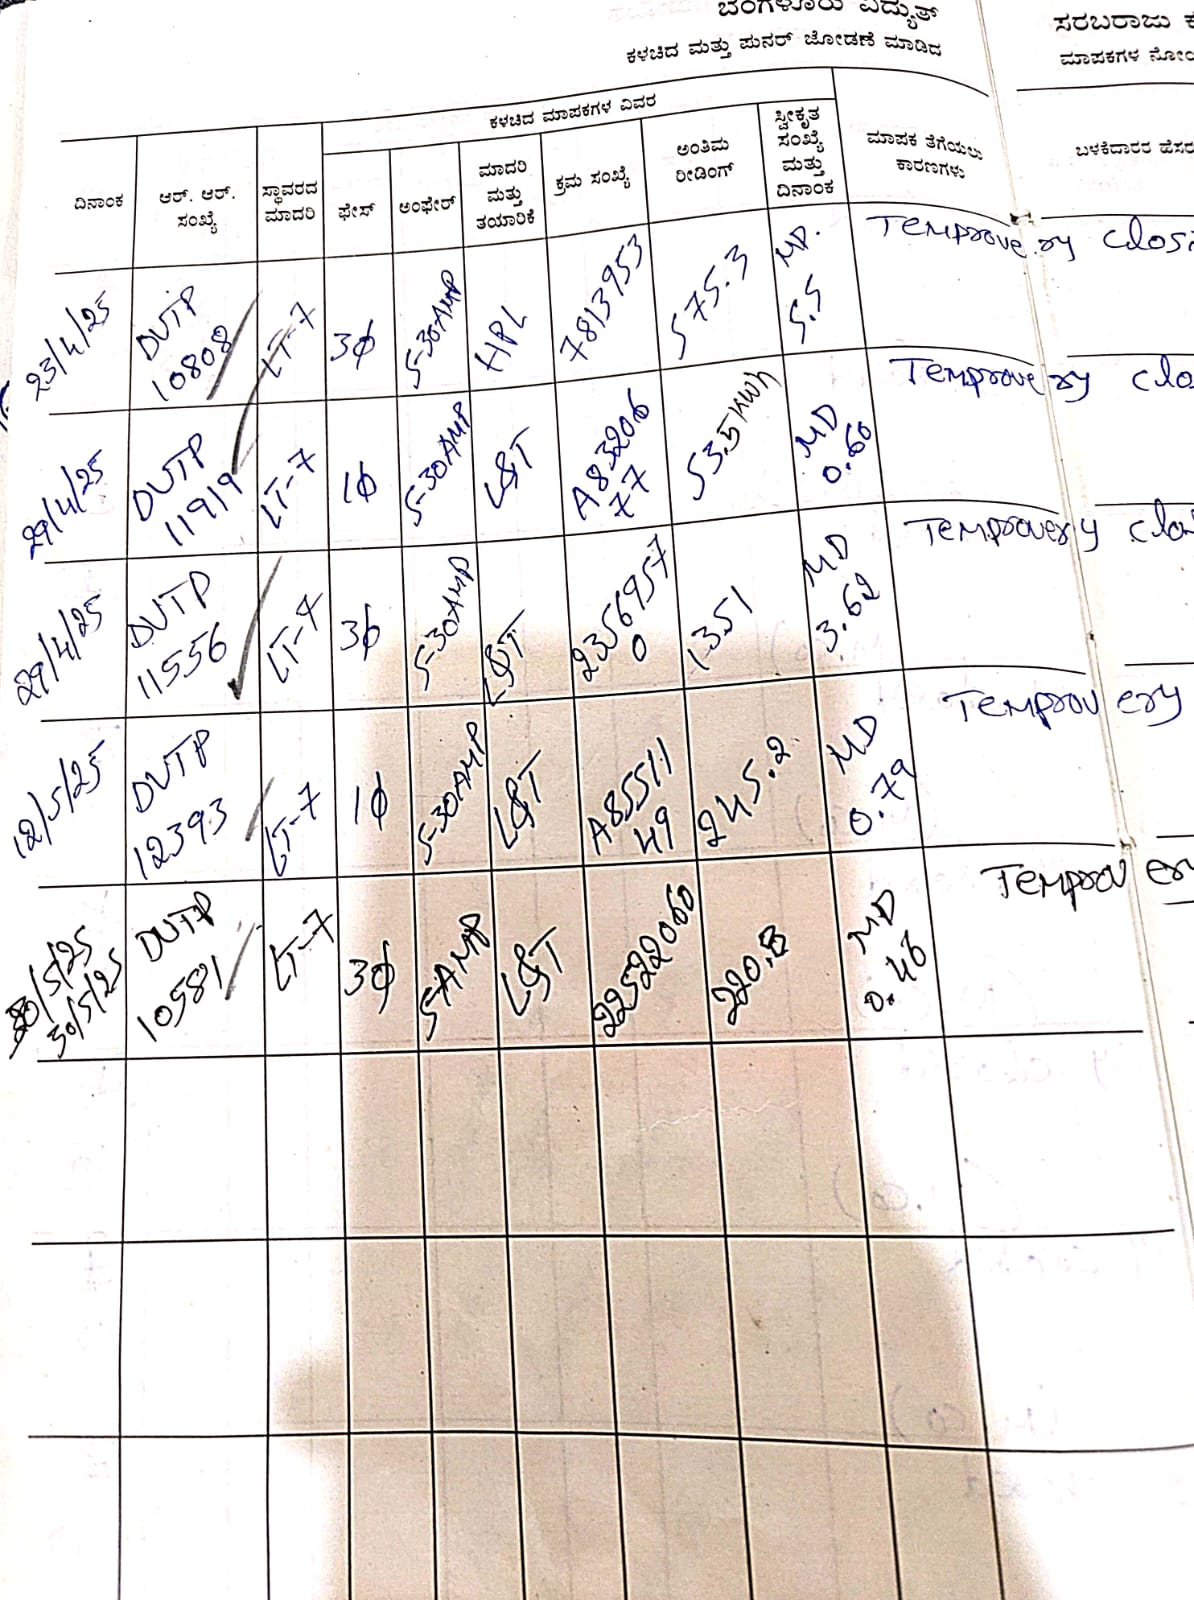 ಬೆಂಗಳೂರು ವಿದ್ಯುತ್
ಸರಬರಾಜು ಕ
ಕಳಚಿದ ಮತ್ತು ಪುನರ್ ಜೋಡಣೆ ಮಾಡಿದ
ಮಾಪಕಗಳ ನೋಂ
ಕಳಚಿದ ಮಾಪಕಗಳ ವಿವರ
ದಿನಾಂಕ
ಆರ್. ಆರ್.
ಸಂಖ್ಯೆ
ಸ್ಥಾವರದ
ಮಾದರಿ
ಫೇಸ್
ಅಂಫೇರ್
ಮಾದರಿ
ಮತ್ತು
ತಯಾರಿಕೆ
ಕ್ರಮ ಸಂಖ್ಯೆ
ಅಂತಿಮ
ರೀಡಿಂಗ್
ಸ್ವೀಕೃತ
ಸಂಖ್ಯೆ
ಮತ್ತು
ದಿನಾಂಕ
ಮಾಪಕ ತೆಗೆಯಲು
ಕಾರಣಗಳು
ಬಳಕೆದಾರರ ಹೆಸರ
23/4/25
DUTP
10808
LT-7
3ϕ
5-30AMP
HPL
7813953
575.3
MD.
5.5
Temprovery closi
29/4/25
DUTP
11919
LT-7
1ϕ
5-30AMP
L&T
A83206
77
53.5 kwh
MD
0.60
Temprovery clo
29/4/25
DUTP
11556
LT-7
3ϕ
5-30AMP
L&T
2356957
0
1351
MD
3.62
Temprovery clo
12/5/25
DUTP
12393
LT-7
1ϕ
5-30AMP
L&T
A85511
49
245.2
MD
0.79
Temprovery
30/5/25
30/5/25
DUTP
10581
LT-7
3ϕ
5AMP
L&T
22522060
220.8
MD
0.46
Temprovery